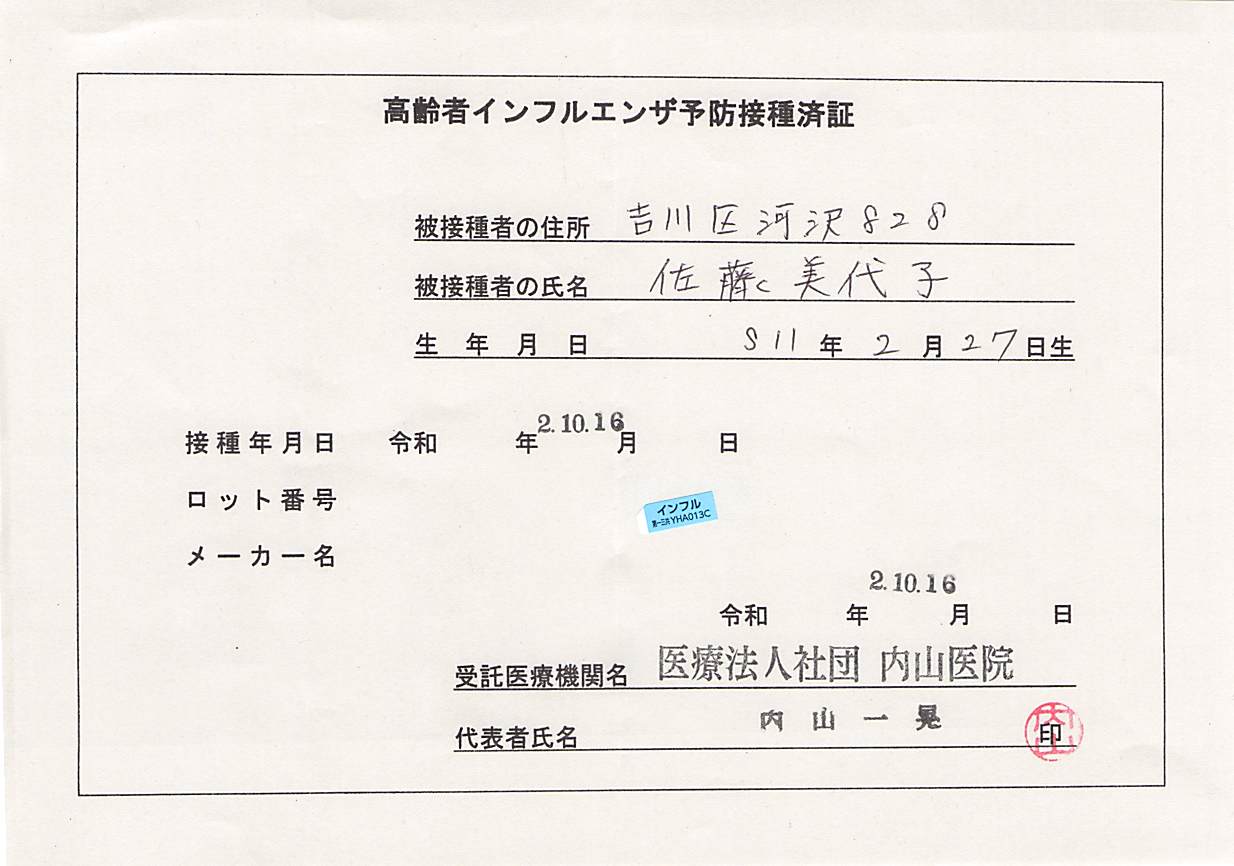 高齢者インフルエンザ予防接種済証
被接種者の住所 吉川区河沢828
被接種者の氏名 佐藤 美代子
生年月日 S11年2月27日生
2.10.16
接種年月日 令和 年 月 日
ロット番号
インフル
第一三共YHA013C
メーカー名
2.10.16
令和 年 月 日
受託医療機関名 医療法人社団 内山医院
代表者氏名 内山一晃 印
内山